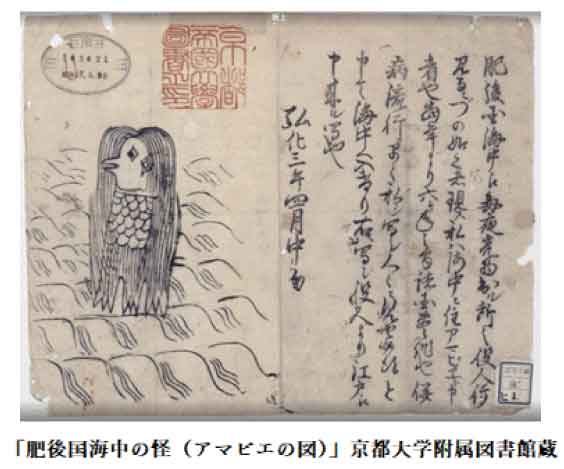 肥後国海中え毎夜光物出ル所之役人行
見るニづの如之者現ス私ハ海中ニ住アマビヱト申
者也當年より六ケ年之間諸国豊作也併
病流行早々私写シ人々ニ見せ候得と
申て海中へ入けり右写シ役人より江戸え
申来ル写也
弘化三年四月中旬
京都
帝國大學
圖書之印
「肥後国海中の怪(アマビエの図)」京都大学附属図書館蔵